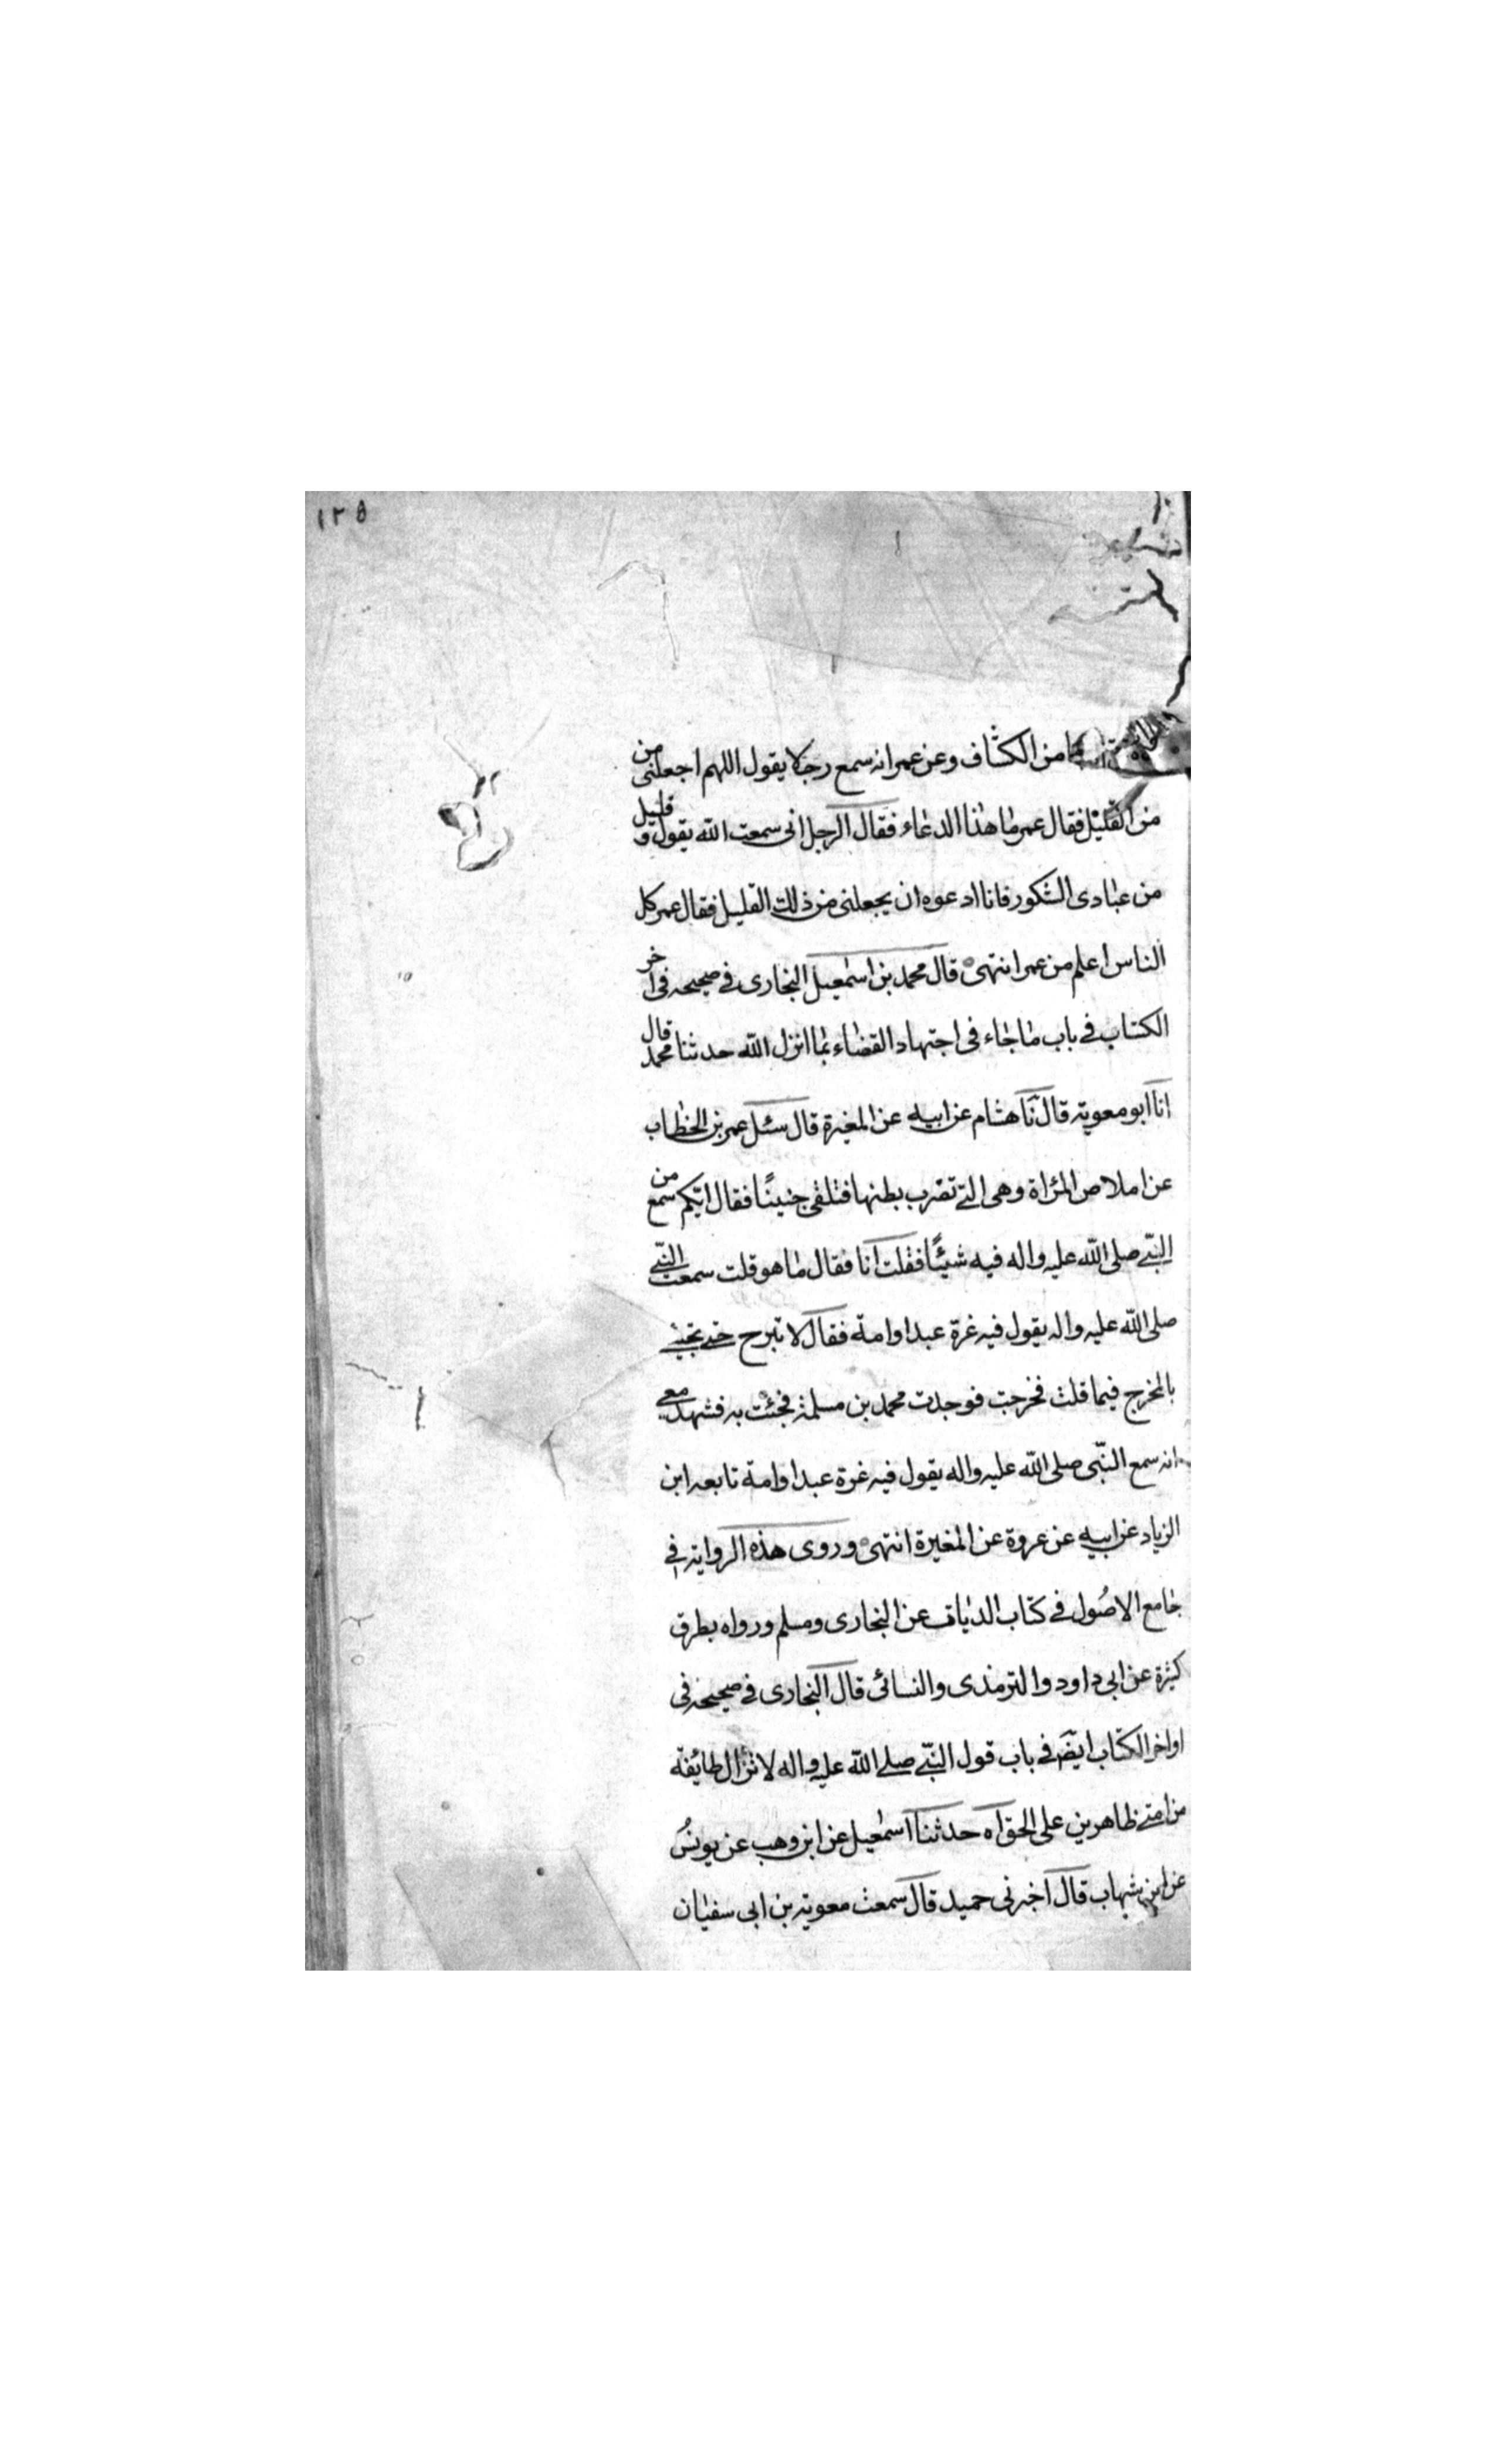 ١٢٥
من الكشاف وعن عمر انه سمع رجلا يقول اللهم اجعلنى من
من القليل فقال عمر ما هذا الدعاء فقال الرجل انى سمعت الله يقول و قليل
من عبادى الشكور فانا ادعوه ان يجعلنى من ذلك القليل فقال عمر كل
الناس اعلم من عمر انتهى قال محمد بن اسمعيل البخارى في صحيحه فى اخر
الكتاب في باب ما جاء فى اجتهاد القضاء بما انزل الله حدثنا محمد قال
انا ابو معوية قال نا هشام عن ابيه عن المغيرة قال سئل عمر بن الخطاب
عن املاص المرأة وهى التي تضرب بطنها فتلقى جنينًا فقال ايّكم سمع من
النبّي صلى الله عليه واله فيه شيئًا فقلت انا فقال ما هو قلت سمعت النبّي
صلى الله عليه واله يقول فيه غرة عبد او امة فقال لا تبرح حتى تجيئنى
بالمخرج فيما قلت فخرجت فوجدت محمد بن مسلمة فجئت به فشهد معي
انه سمع النبّى صلى الله عليه واله يقول فيه غرة عبد او امة تابعه ابن
الزياد عن ابيه عن عروة عن المغيرة انتهى وروى هذه الرواية في
جامع الاصُول في كتاب الديات عن البخارى ومسلم ورواه بطرق
كثيرة عن ابى داود والترمذى والنسائى قال البخارى في صحيحه فى
اواخر الكتاب ايضَ فى باب قول النبّي صلى الله عليه واله لا تزال طائفة
من امتي ظاهرين على الحق اه حدثنا اسمعيل عن ابن وهب عن يونسُ
عن ابن شهاب قال اخبرنى حميد قال سمعت معوية بن ابى سفيان